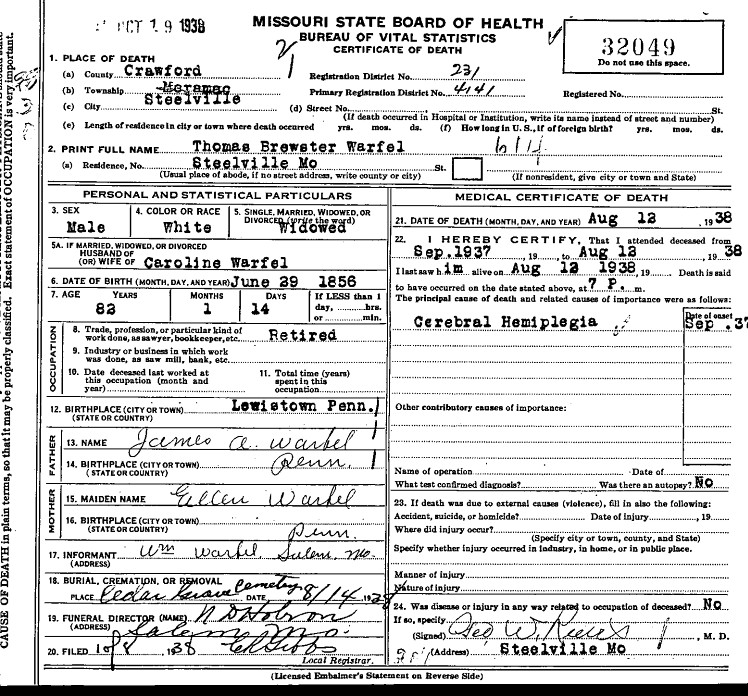 OCT 19 1938
MISSOURI STATE BOARD OF HEALTH
BUREAU OF VITAL STATISTICS
CERTIFICATE OF DEATH
32049
Do not use this space.
1. PLACE OF DEATH
(a) County Crawford
Registration District No. 231
(b) Township Meramec
Primary Registration District No. 4141
Registered No.
(c) City Steelville
(d) Street No. St.
(If death occurred in Hospital or Institution, write its name instead of street and number)
(e) Length of residence in city or town where death occurred yrs. mos. ds. (f) How long in U. S., if of foreign birth? yrs. mos. ds.
2. PRINT FULL NAME Thomas Brewster Warfel
(a) Residence, No. Steelville Mo St.
(Usual place of abode, if no street address, write county or city) (If nonresident, give city or town and State)
PERSONAL AND STATISTICAL PARTICULARS
3. SEX
Male
4. COLOR OR RACE
White
5. SINGLE, MARRIED, WIDOWED, OR
DIVORCED (write the word)
Widowed
5A. IF MARRIED, WIDOWED, OR DIVORCED
HUSBAND OF
(OR) WIFE OF Caroline Warfel
6. DATE OF BIRTH (MONTH, DAY, AND YEAR) June 29 1856
7. AGE YEARS MONTHS DAYS If LESS than 1
day, hrs.
or min.
82 1 14
OCCUPATION
8. Trade, profession, or particular kind of
work done, as sawyer, bookkeeper, etc. Retired
9. Industry or business in which work
was done, as saw mill, bank, etc.
10. Date deceased last worked at
this occupation (month and
year)
11. Total time (years)
spent in this
occupation
12. BIRTHPLACE (CITY OR TOWN) Lewistown Penn.
(STATE OR COUNTRY)
FATHER
13. NAME James A. Warfel
14. BIRTHPLACE (CITY OR TOWN) Penn.
(STATE OR COUNTRY)
MOTHER
15. MAIDEN NAME Ellen Warfel
16. BIRTHPLACE (CITY OR TOWN)
(STATE OR COUNTRY) Penn.
17. INFORMANT Wm Warfel Salem, Mo
(ADDRESS)
18. BURIAL, CREMATION, OR REMOVAL
PLACE Cedar Grove Cemetery DATE 8/14 1938
19. FUNERAL DIRECTOR (NAME) N D Hobson
(ADDRESS) Salem Mo.
20. FILED 10/8 1938
Local Registrar.
MEDICAL CERTIFICATE OF DEATH
21. DATE OF DEATH (MONTH, DAY, AND YEAR) Aug 12 , 1938
22. I HEREBY CERTIFY, That I attended deceased from
Sep. 1937 , 19 , to Aug 12 , 1938
I last saw him alive on Aug 12 1938, 19 . Death is said
to have occurred on the date stated above, at 7 P. m.
The principal cause of death and related causes of importance were as follows:
Date of onset
Cerebral Hemiplegia Sep .37
Other contributory causes of importance:
Name of operation Date of
What test confirmed diagnosis? Was there an autopsy? No
23. If death was due to external causes (violence), fill in also the following:
Accident, suicide, or homicide? Date of injury , 19
Where did injury occur?
(Specify city or town, county, and State)
Specify whether injury occurred in industry, in home, or in public place.
Manner of injury
Nature of injury
24. Was disease or injury in any way related to occupation of deceased? No
If so, specify
(Signed) Geo W. , M. D.
(Address) Steelville Mo
(Licensed Embalmer's Statement on Reverse Side)
CAUSE OF DEATH in plain terms, so that it may be properly classified. Exact statement of OCCUPATION is very important.